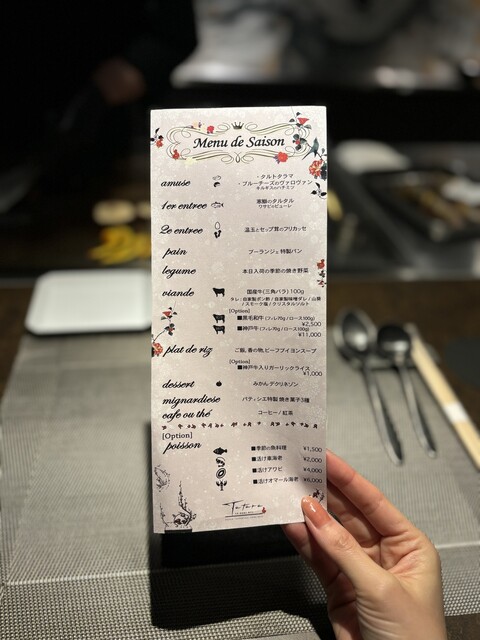 Menu de Saison
amuse
・タルトタラマ
・ブルーチーズのヴァロヴァン
キルギスのハチミツ
1er entree
寒鰤のタルタル
ワサビのピューレ
2e entree
温玉とセップ茸のフリカッセ
pain
ブーランジェ特製パン
legume
本日入荷の季節の焼き野菜
viande
国産牛(三角バラ) 100g
タレ:自家製ポン酢 / 自家製味噌ダレ / 山葵
/ スモーク塩 / クリスタルソルト
[Option]
■黒毛和牛 (フィレ70g / ロース100g)
¥2,500
■神戸牛 (フィレ70g / ロース100g)
¥11,000
plat de riz
ご飯, 香の物, ビーフブイヨンスープ
[Option]
■神戸牛入りガーリックライス
¥1,000
dessert
みかんデクリネゾン
mignardiese
パティシエ特製 焼き菓子3種
cafe ou thé
コーヒー / 紅茶
[Option]
poisson
■季節の魚料理 ¥1,500
■活け車海老 ¥2,000
■活けアワビ ¥4,000
■活けオマール海老 ¥6,000